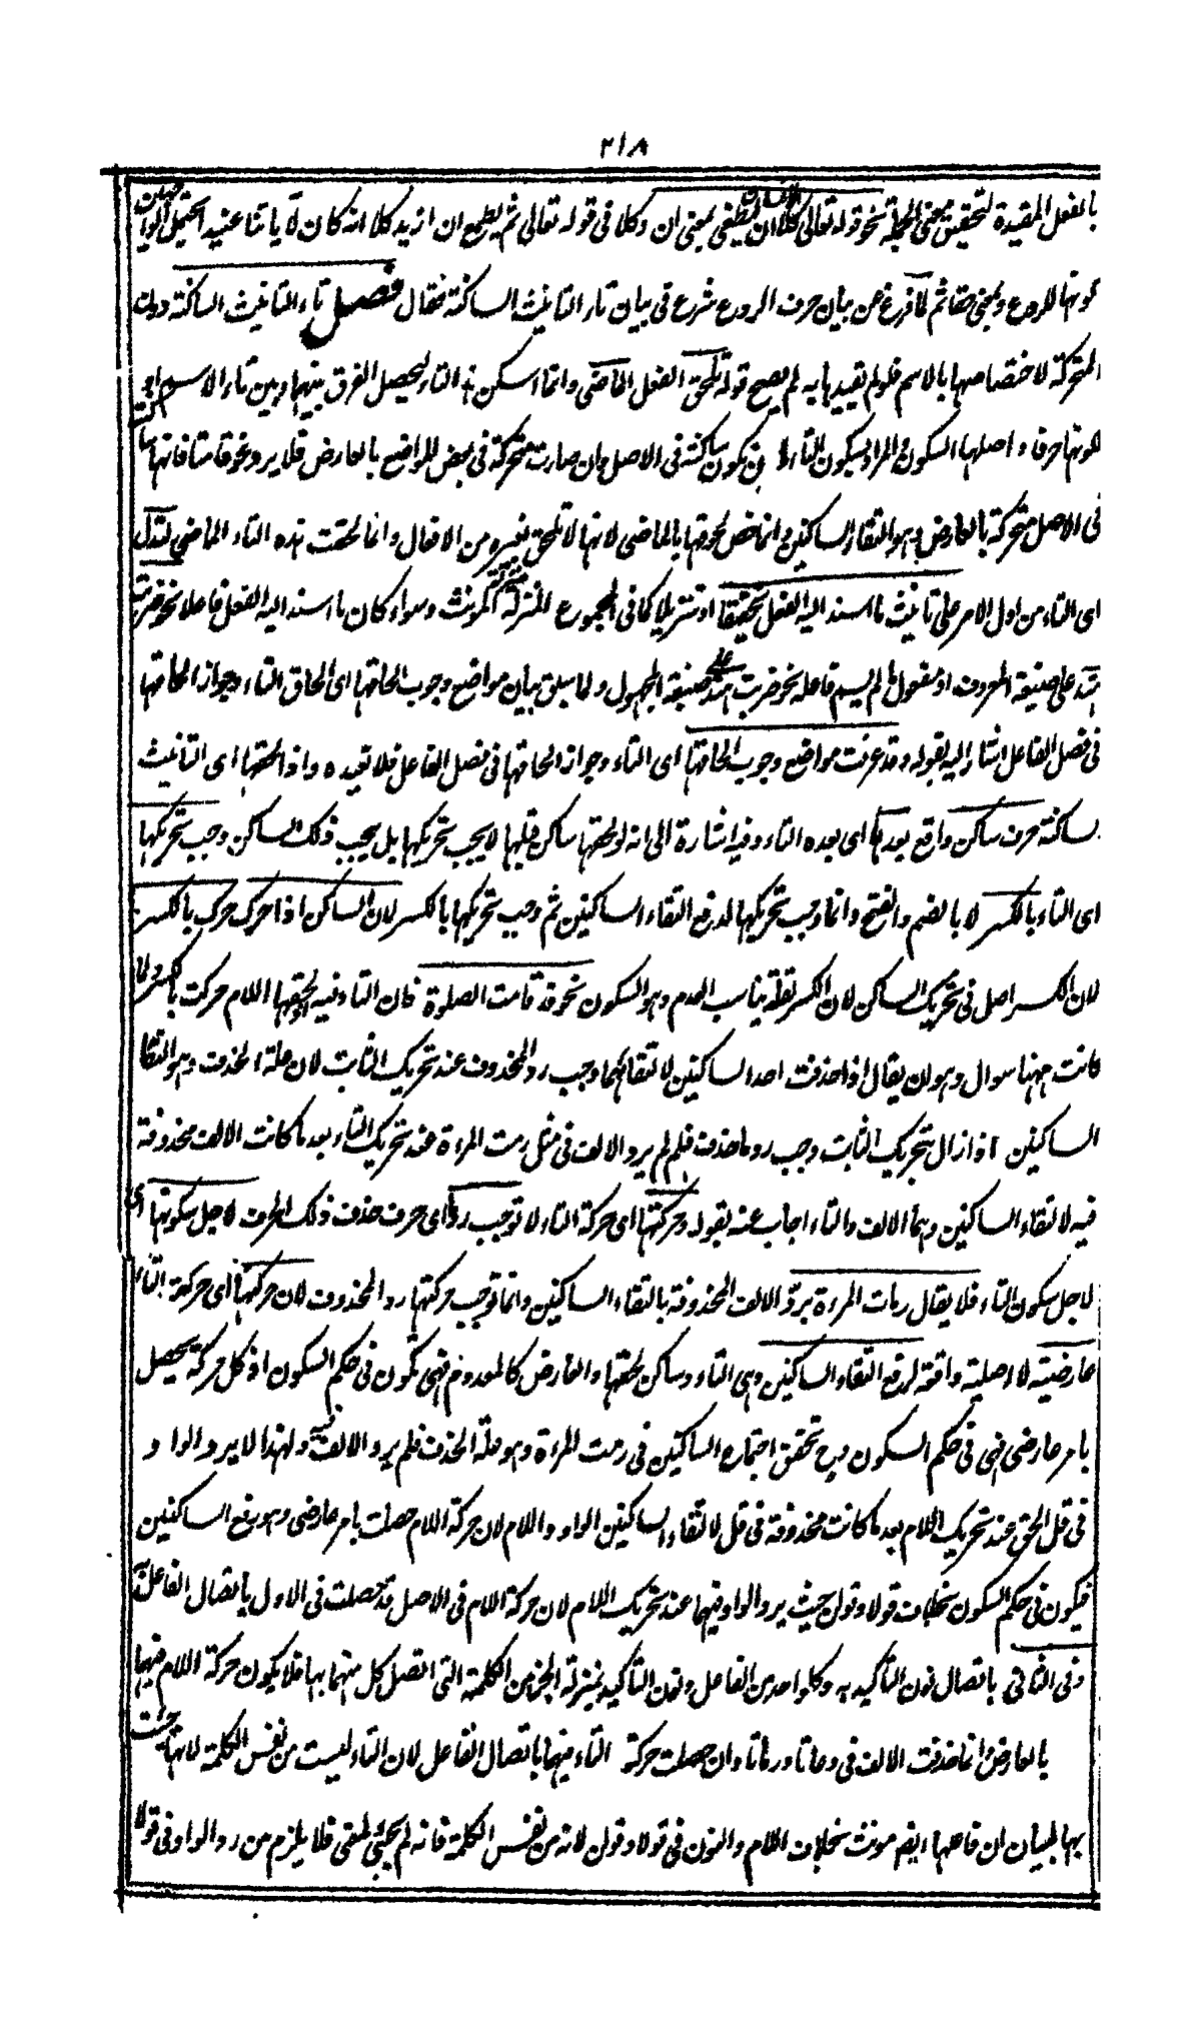 ٢١٨
بالفعل المقيدة لتحقيق معنى الجملة نحو قوله تعالى كلا ان الانسان ليطغى بمعنى ان وكلا فى قوله تعالى ثم يطمع ان ازيد كلا انه كان لآياتنا عنيدا يحتمل الوجهين
كونها للردع وبمعنى حقا ثم لما فرغ عن بيان حرف الردع شرع فى بيان تاء التانيث الساكنة فقال فصل تاء التانيث الساكنة دون
المتحركة لاختصاصها بالاسم فلو لم يقيدها به لم يصح قوله تلحق الفعل الماضى وانما اسكن هذه التاء ليحصل الفرق بينها وبين تاء الاسم او
لكونها حرفا واصلها السكون والمراد بسكون التاء ان يكون ساكنة فى الاصل وان صارت متحركة فى بعض المواضع بالعارض فلا يرد نحو قامتا فانها ساكنة
فى الاصل متحركة بالعارض وهو التقاء الساكنين وانما خص لحوقها بالماضى لانها لا تلحق بغيره من الافعال وانما لحقت هذه التاء الماضى لتدل
اى التاء من اول الامر على تانيث ما اسند اليه الفعل تحقيقا او تنزيلا كما فى الجموع المنزلة منزلة المونث وسواء كان ما اسند اليه الفعل فاعلا نحو ضربت
هند على صيغة المعروف او مفعول ما لم يسم فاعله نحو ضربت هند على صيغة المجهول ولما سبق بيان مواضع وجوب الحاقها اى الحاق التاء وجواز الحاقها
فى فصل الفاعل اشار اليه بقوله وقد عرفت مواضع وجوب الحاقها اى التاء وجواز الحاقها فى فصل الفاعل فلا نعيده واذا لحقتها اى التانيث
ساكنة حرف ساكن واقع بعدها اى بعده التاء وفيه اشارة الى انه لو لحقتها ساكن قبلها لا يجب تحريكها بل يجب ذلك الساكن وجب تحريكها
اى التاء بالكسر لا بالضم والفتح وانما وجب تحريكها لدفع التقاء الساكنين ثم وجب تحريكها بالكسر لان الساكن اذا حرك حرك بالكسر
لان الكسر اصل فى تحريك الساكن لان الكسر لقلته يناسب العدم وهو السكون نحو قد قامت الصلوة فان التاء فيه لحوقها اللام حركت بالكسر ولما
كانت ههنا سوال وهو ان يقال اذا حذفت احد الساكنين لالتقائهما وجب رد المحذوف عند تحريك الثابت لان علة الحذف وهو التقاء
الساكنين اذا زال بتحريك الثابت وجب رد ما حذف فلم لم يرد الالف فى مثل رمت المرءة عند تحريك التاء بعد ما كانت الالف محذوفة
فيه لالتقاء الساكنين وهما الالف والتاء اجاب عنه بقوله وحركتها اى حركة التاء لا توجب رد اى حرف حذف ذلك الحرف لاجل سكونها اى
لاجل سكون التاء فلا يقال رمات المرءة برد الالف المحذوفة بالتقاء الساكنين وانما توجب حركتها رد المحذوف لان حركتها اى حركة التاء
عارضية لا اصلية واقعة لدفع التقاء الساكنين وهى التاء وساكن لحقتها والعارض كالمعدوم فهى تكون فى حكم السكون اذ كل حركة يحصل
بامر عارضى فهى فى حكم السكون وح تحقق اجتماع الساكنين فى رمت المرءة وهو علة الحذف فلم يرد الالف فيه ولهذا لا يرد الواو
فى قل الحق عند تحريك اللام بعد ما كانت محذوفة فى قل لالتقاء الساكنين الواو واللام لان حركة اللام حصلت بامر عارضى وهو رفع الساكنين
فيكون فى حكم السكون بخلاف قولا وقولن حيث يرد الواو فيهما عند تحريك اللام لان حركة اللام فى الاصل قد حصلت فى الاول باتصال الفاعل به
وفى الثانى باتصال نون التاكيد به وكل واحد من الفاعل ونون التاكيد بمنزلة الجزء من الكلمة التى اتصل كل منهما بها فلا يكون حركة اللام فيهما
بالعارض وانما حذفت الالف فى دعاتا ورماتا وان حصلت حركة التاء فيهما باتصال الفاعل لان التاء ليست من نفس الكلمة لانها جئت
بها لبيان ان فاعلها ايضم مونث بخلاف اللام والنون فى قولا وقولن لانه من نفس الكلمة فانه لم يجئ لمعنى فلا يلزم من رد الواو فى قولا